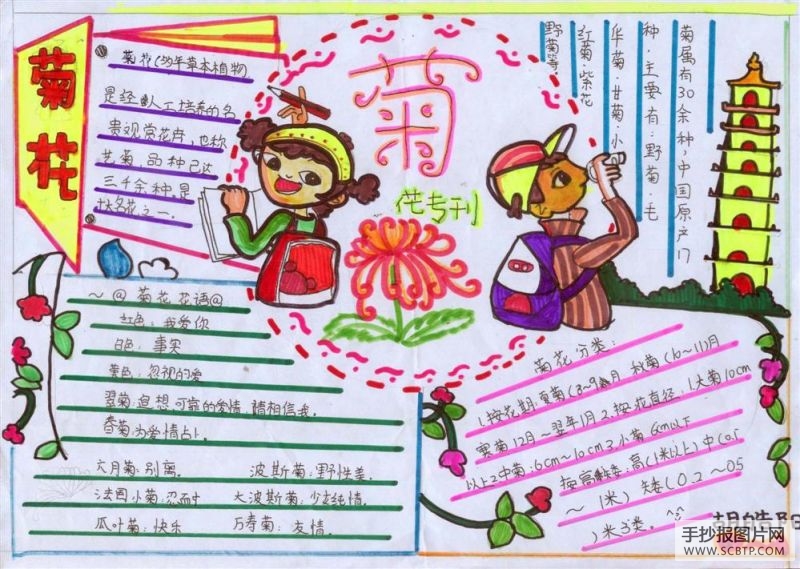 菊花
菊花(多年草本植物)
是经人工培养的名
贵观赏花卉,也称
艺菊,品种已达
三千余种,是
十大名花之一.
菊
花专刊
菊属有30余种,中国原产门
种,主要有:野菊.毛
华菊.甘菊.小
红菊.紫花
野菊等
~@菊花花语@
红色:我爱你
白色:事实
黄色:忽视的爱
翠菊:追想.可靠的爱情,请相信我。
春菊:为爱情占卜.
六月菊:别离。
波斯菊:野性美.
法国小菊:忍耐
大波斯菊:少女纯情.
瓜叶菊:快乐
万寿菊:友情.
菊花分类:
1.按花期:夏菊(8~9)月 秋菊(10~11)月
寒菊12月~翌年1月2.按花直径:1大菊10cm
以上2中菊:6cm~10cm3小菊6cm以下
按高矮:高(1米以上)中(0.5
~1米)矮(0.2~0.5
)米3类.
手抄报图片网
WWW.SCBTP.COM